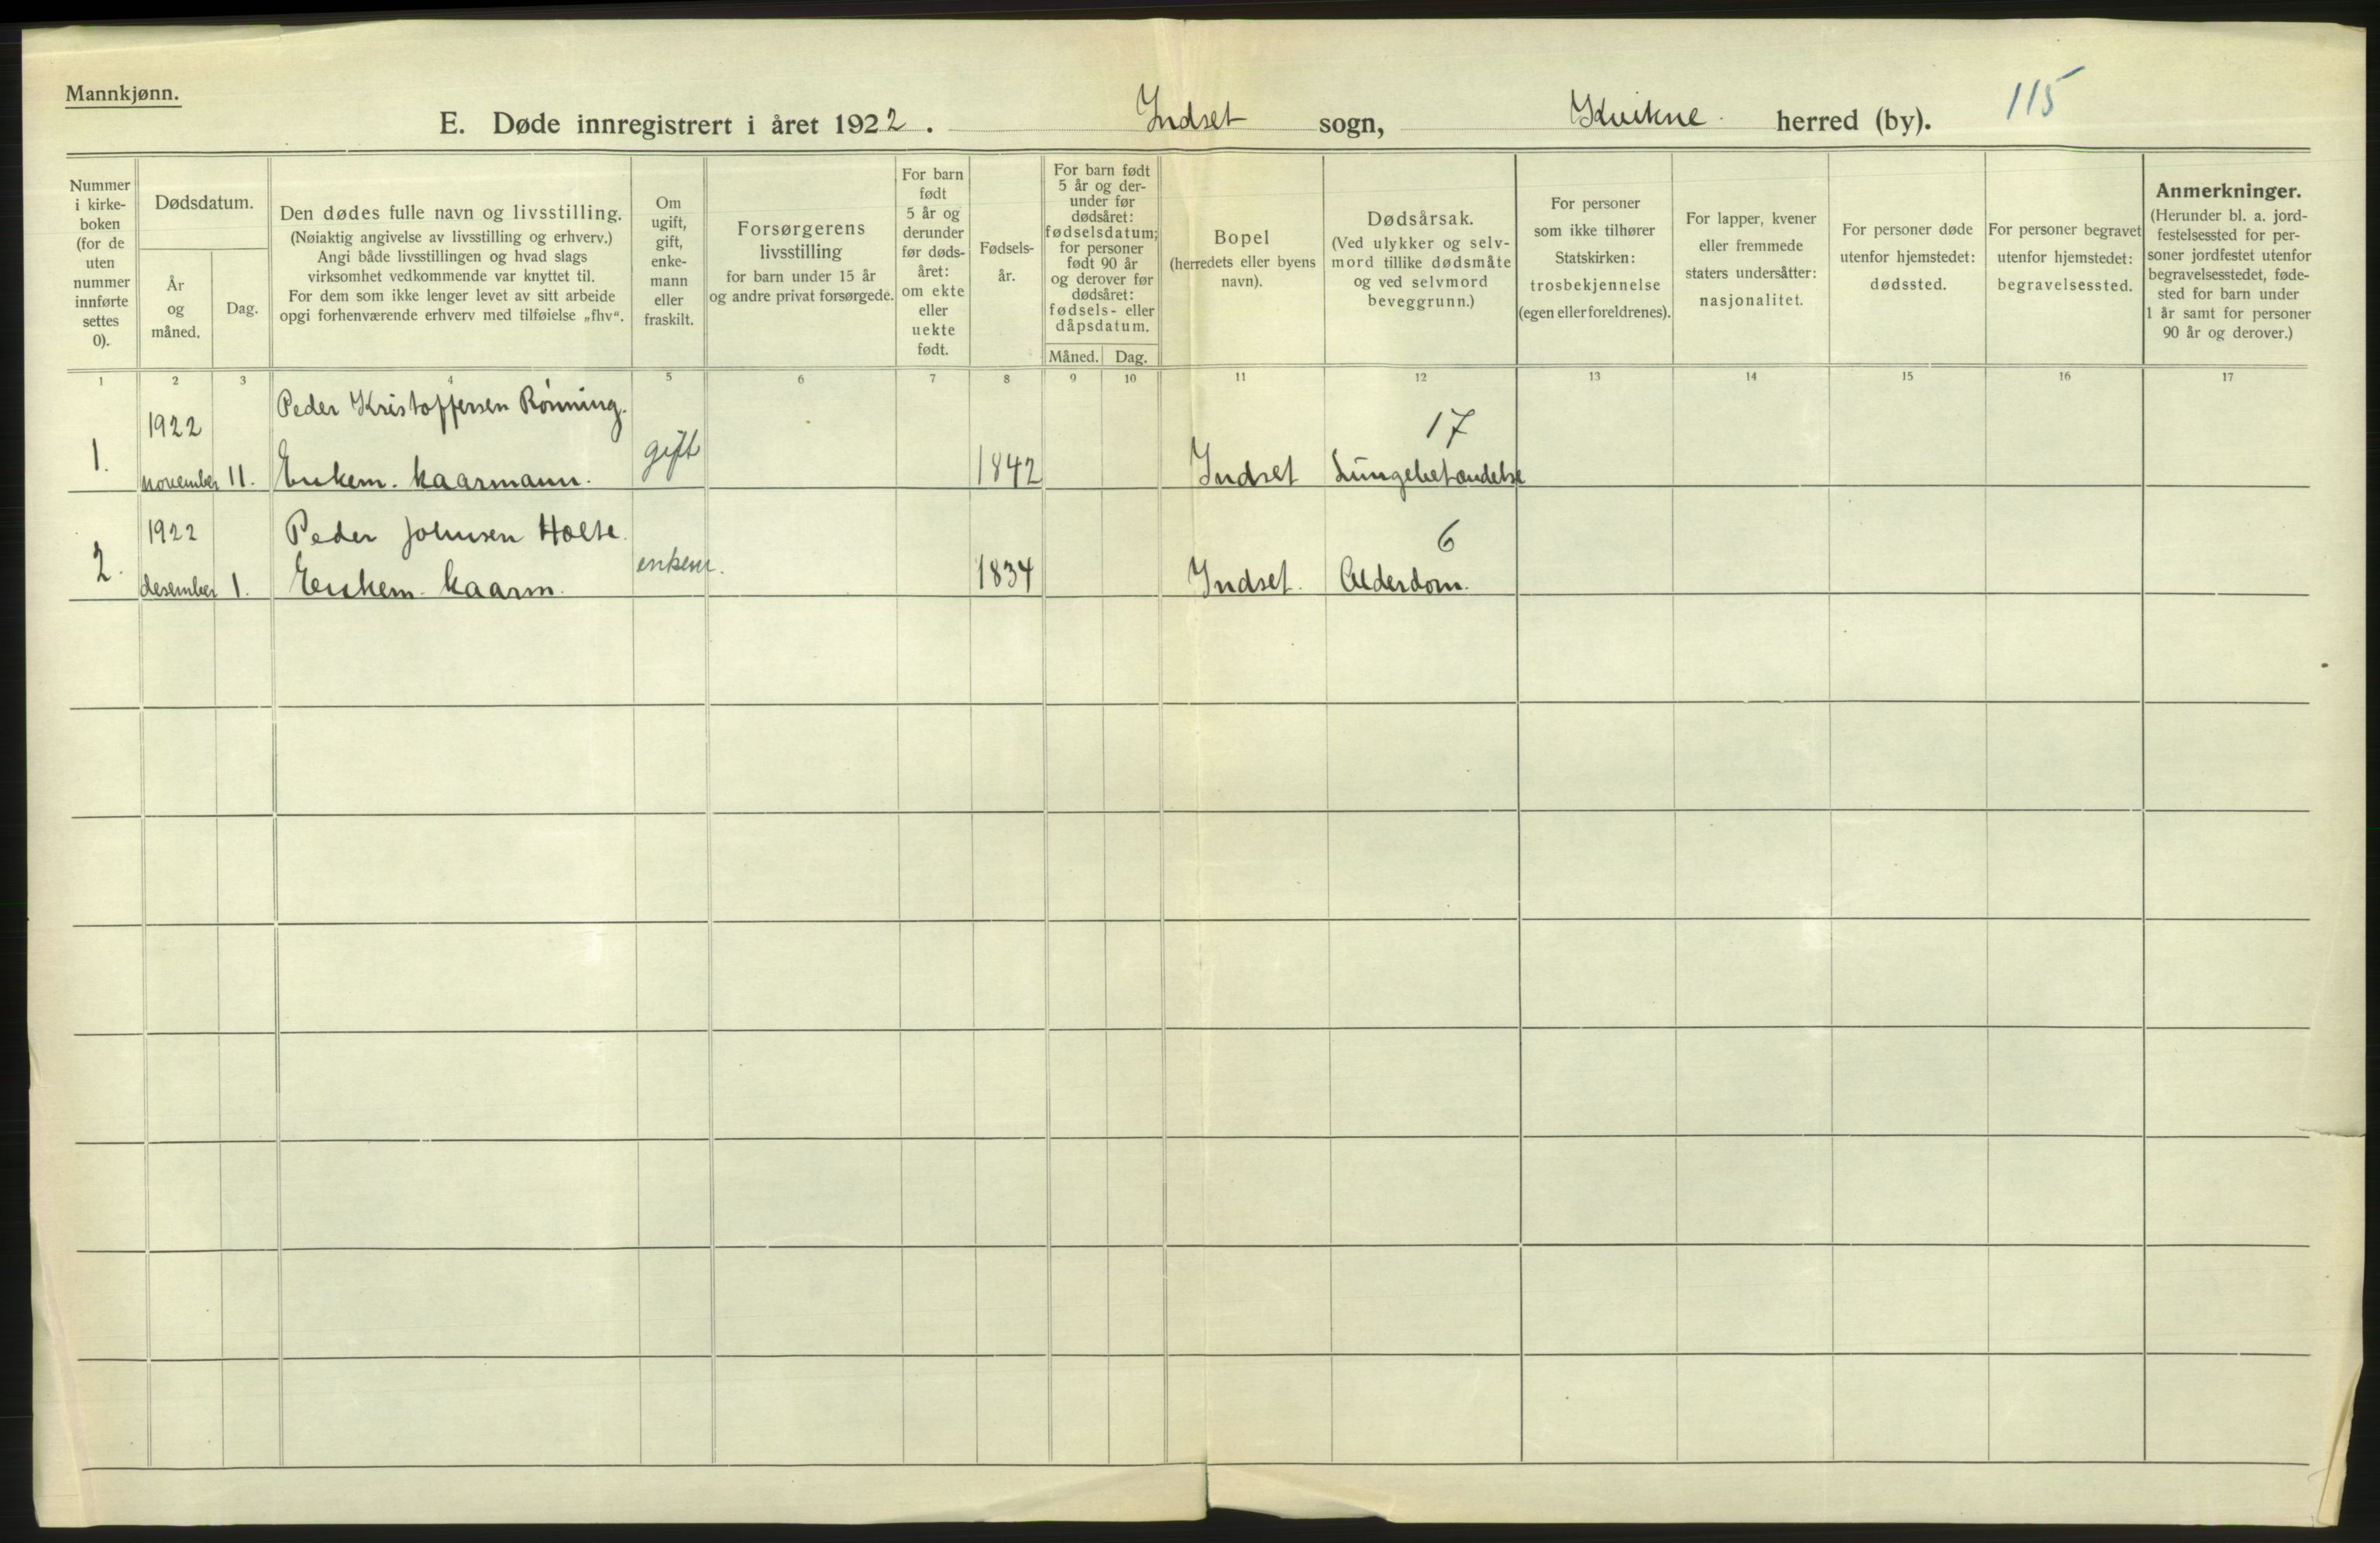 Mannkjønn.
E. Døde innregistrert i året 1922. Indset sogn, Kvikne herred (by). 115
Nummer
i kirke-
boken
(for de
uten
nummer
innførte
settes
0).
Dødsdatum.
År
og
måned.
Dag.
Den dødes fulle navn og livsstilling.
(Nøiaktig angivelse av livsstilling og erhverv.)
Angi både livsstillingen og hvad slags
virksomhet vedkommende var knyttet til.
For dem som ikke lenger levet av sitt arbeide
opgi forhenværende erhverv med tilføielse „fhv“.
Om
ugift,
gift,
enke-
mann
eller
fraskilt.
Forsørgerens
livsstilling
for barn under 15 år
og andre privat forsørgede.
For barn
født
5 år og
derunder
før døds-
året:
om ekte
eller
uekte
født.
Fødsels-
år.
For barn født
5 år og der-
under før
dødsåret:
fødselsdatum;
for personer
født 90 år
og derover før
dødsåret:
fødsels- eller
dåpsdatum.
Måned. Dag.
Bopel
(herredets eller byens
navn).
Dødsårsak.
(Ved ulykker og selv-
mord tillike dødsmåte
og ved selvmord
beveggrunn.)
For personer
som ikke tilhører
Statskirken:
trosbekjennelse
(egen eller foreldrenes).
For lapper, kvener
eller fremmede
staters undersåtter:
nasjonalitet.
For personer døde
utenfor hjemstedet:
dødssted.
For personer begravet
utenfor hjemstedet:
begravelsessted.
Anmerkninger.
(Herunder bl. a. jord-
festelsessted for per-
soner jordfestet utenfor
begravelsesstedet, føde-
sted for barn under
1 år samt for personer
90 år og derover.)
1 2 3 4 5 6 7 8 9 10 11 12 13 14 15 16 17
1922 Peder Kristoffersen Rønning. 17
1. november 11. Enkem. kaarmann. gift 1842 Indset Lungebetændelse
1922 Peder Johnsen 6
2. desember 1. Enkem. kaarm. enkem. 1834 Indset. Alderdom.